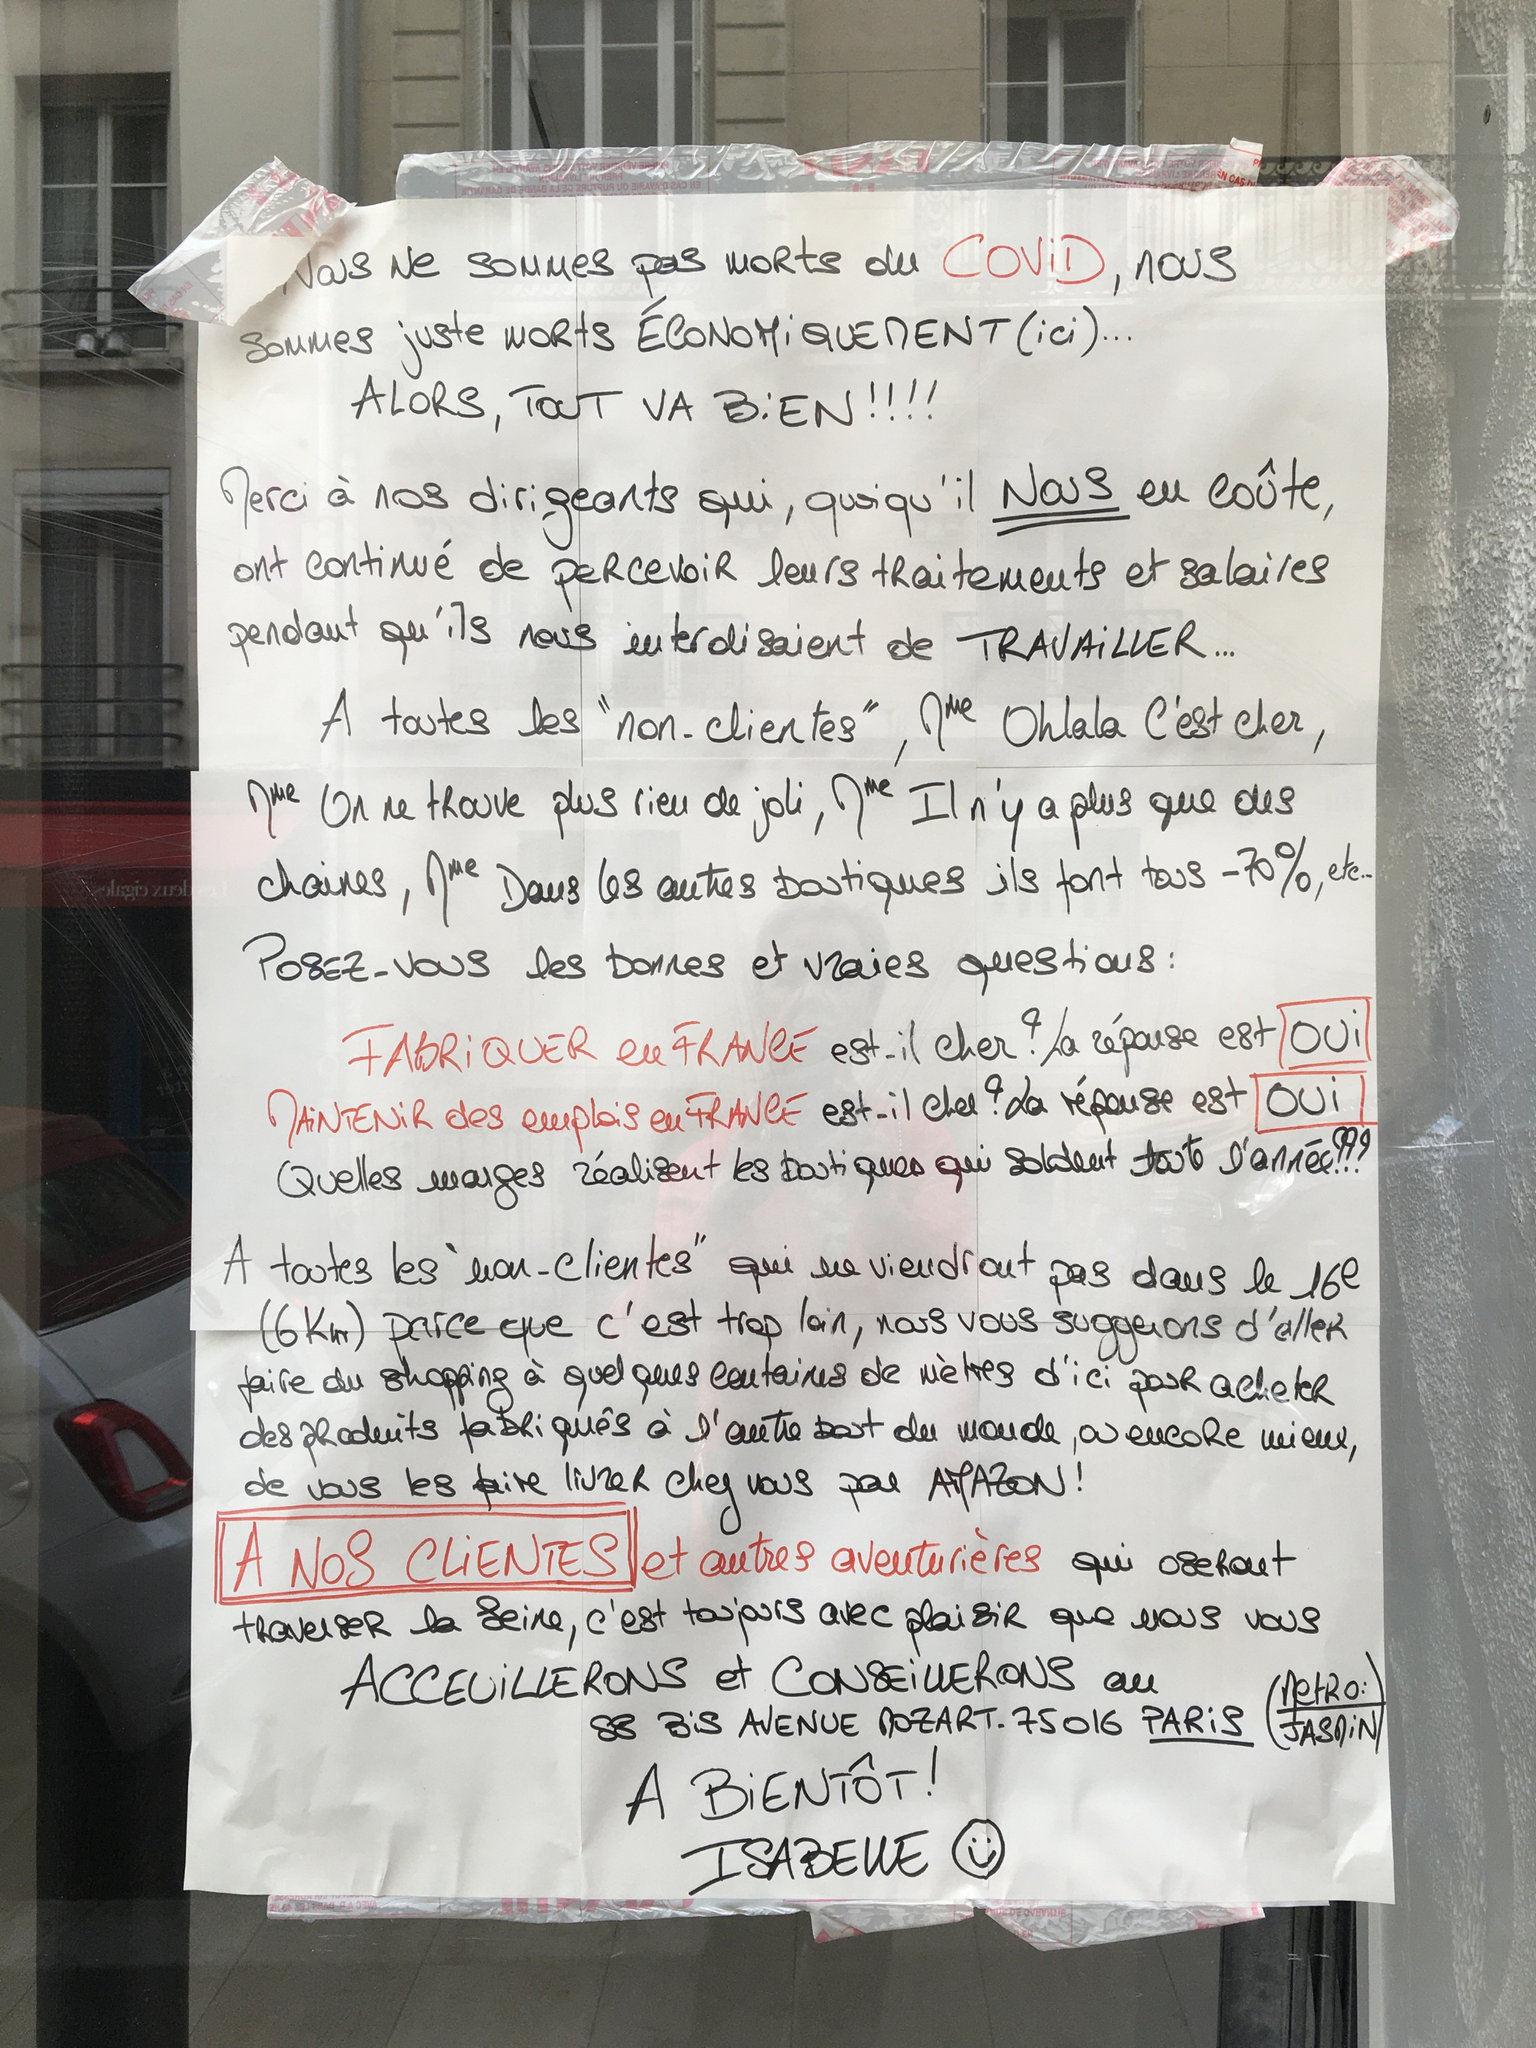 Nous ne sommes pas morts du COViD, nous
sommes juste morts ÉCONOMiQUEMENT (ici)...
ALORS, TOUT VA BiEN!!!!
Merci à nos dirigeants qui, quoiqu'il NOUS en coûte,
ont continué de percevoir leurs traitements et salaires
pendant qu'ils nous interdisaient de TRAVAiLLER...
A toutes les "non-clientes", Mme Ohlala C'est cher,
Mme On ne trouve plus rien de joli, Mme Il n'y a plus que des
chaines, Mme Dans les autres boutiques ils font tous -70%, etc...
POSEZ-vous les bonnes et vraies questions:
FABRiQUER en FRANCE est-il cher? La réponse est OUi
MAiNTENiR des emplois en FRANCE est-il cher? La réponse est OUi
Quelles marges réalisent les boutiques qui soldent toute l'année???
A toutes les "non-clientes" qui ne viendront pas dans le 16e
(6Km) parce que c'est trop loin, nous vous suggerons d'aller
faire du shopping à quelques centaines de mètres d'ici pour acheter
des produits fabriqués à l'autre bout du monde, ou encore mieux,
de vous les faire livrer chez vous par AMAZON!
A NOS CLiENTES et autres aventurières qui oseront
traverser la Seine, c'est toujours avec plaisir que nous vous
ACCEUiLLERONS et CONSEiLLERONS au
88 Bis AVENUE MOZART-75016 PARiS (METRO:
JASMiN)
A BiENTÔT!
ISABELLE
Les deux cigales